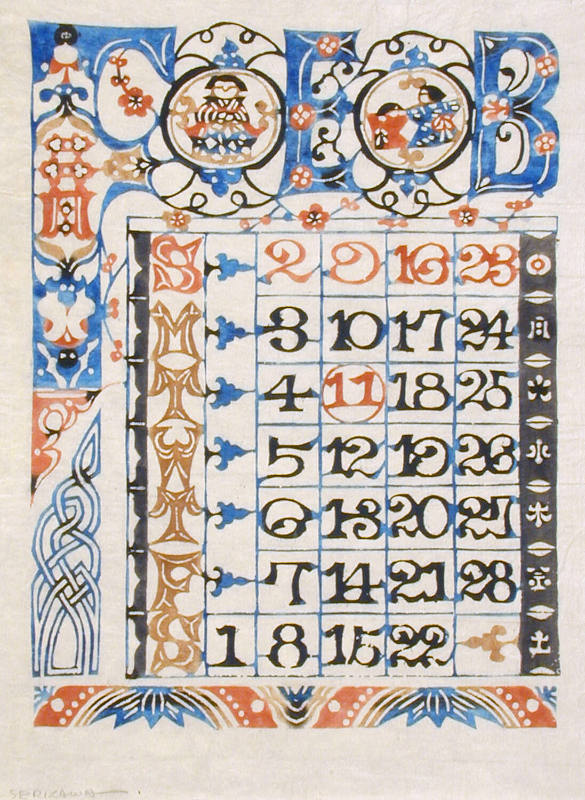 FEB
S 2 9 16 23 日
M 3 10 17 24 月
T 4 11 18 25 火
W 5 12 19 26 水
T 6 13 20 27 木
F 7 14 21 28 金
S 1 8 15 22 土
SERIZAWA